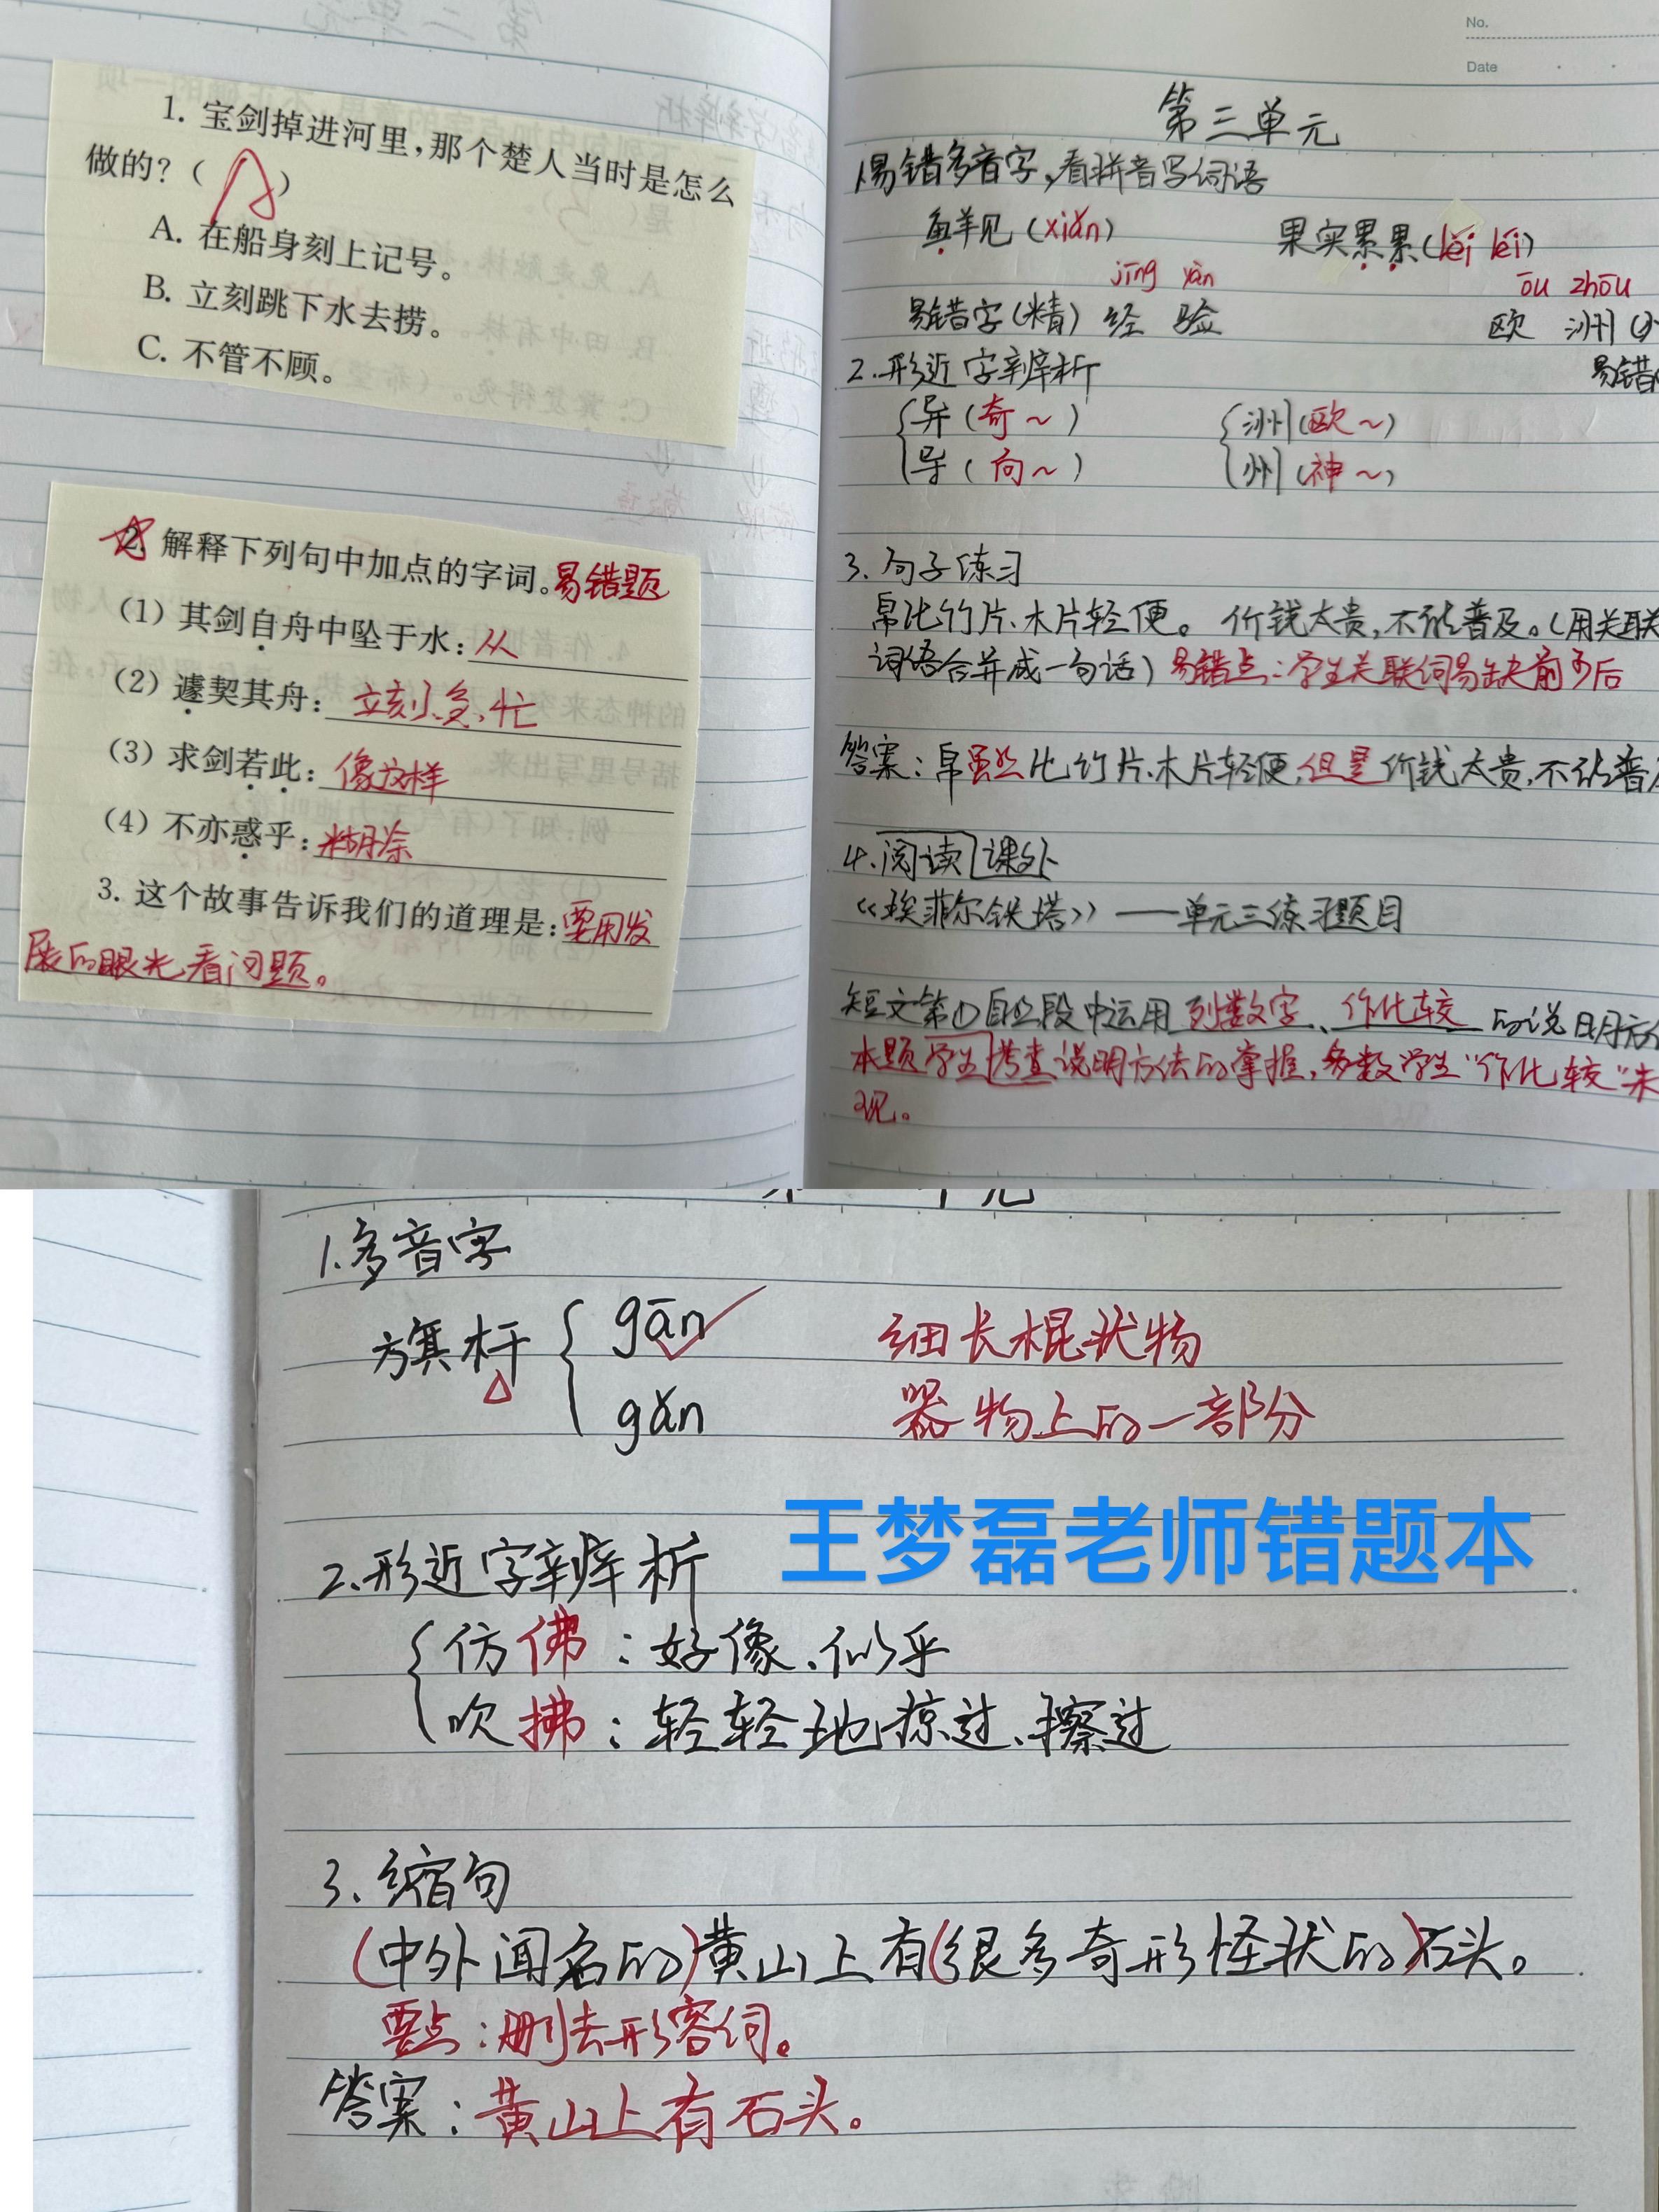 1. 宝剑掉进河里,那个楚人当时是怎么
做的?( A )
A. 在船身刻上记号。
B. 立刻跳下水去捞。
C. 不管不顾。
2. 解释下列句中加点的字词。易错题
(1) 其剑自舟中坠于水: 从
(2) 遽契其舟: 立刻、急忙
(3) 求剑若此: 像这样
(4) 不亦惑乎: 糊涂
3. 这个故事告诉我们的道理是: 要用发
展的眼光看问题。
No.
Date
第三单元
1.易错多音字,看拼音写词语
鱼羊见 (xiǎn) 果实累累(léi léi)
jīng yàn ōu zhōu
易错字(精) 经 验 欧 洲
易错
2.形近字辨析
异 (奇~) 洲(欧~)
导 (向~) 州(神~)
3. 句子练习
帛比竹片、木片轻便。 价钱太贵,不能普及。(用关联
词语合并成一句话) 易错点:学生关联词易缺前少后
答案:帛虽然比竹片、木片轻便,但是价钱太贵,不能普
4. 阅读 课外
《埃菲尔铁塔》——单元三练习题目
短文第①自然段中运用 列数字、作比较 的说明方
本题学生考查说明方法的掌握,多数学生“作比较”未
现。
1.多音字
旗杆 gān 细长棍状物
gǎn 器物上的一部分
王梦磊老师错题本
2.形近字辨析
仿佛:好像、似乎
吹拂:轻轻地掠过、擦过
3. 缩句
(中外闻名的)黄山上有(很多奇形怪状的)石头。
要点:删去形容词。
答案:黄山上有石头。